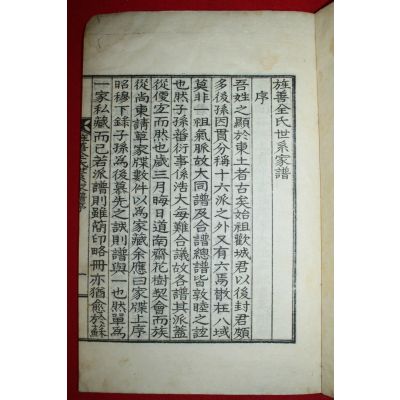 旌善全氏世系家譜
序
吾姓之顯於東土者古矣始祖歡城君以後封君頗
多後孫因貫分稱十六派之外又有六焉散在八域
莫非一祖氣脉故大同譜及合譜總譜皆敦睦之誼
也然子孫蕃衍事係浩大每難合議故各譜其派蓋
從便宜而然也歲三月晦日道南齋花樹契會而族
從尚東請單家牒數件以爲家藏余應曰家牒上序
昭穆下錄子孫爲後慕先之誠則譜與一也然單爲
一家私藏而已若派譜則雖簡印略冊亦猶愈於蘇